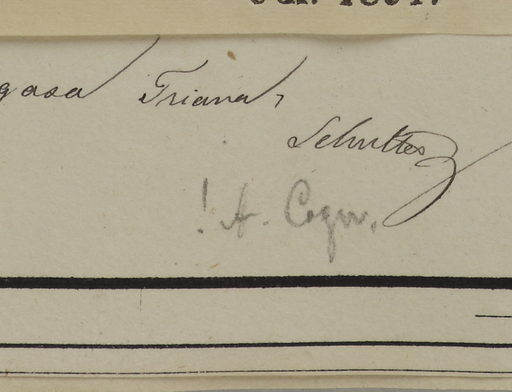 gasa Triana,
Schultes
! A. Cogn.